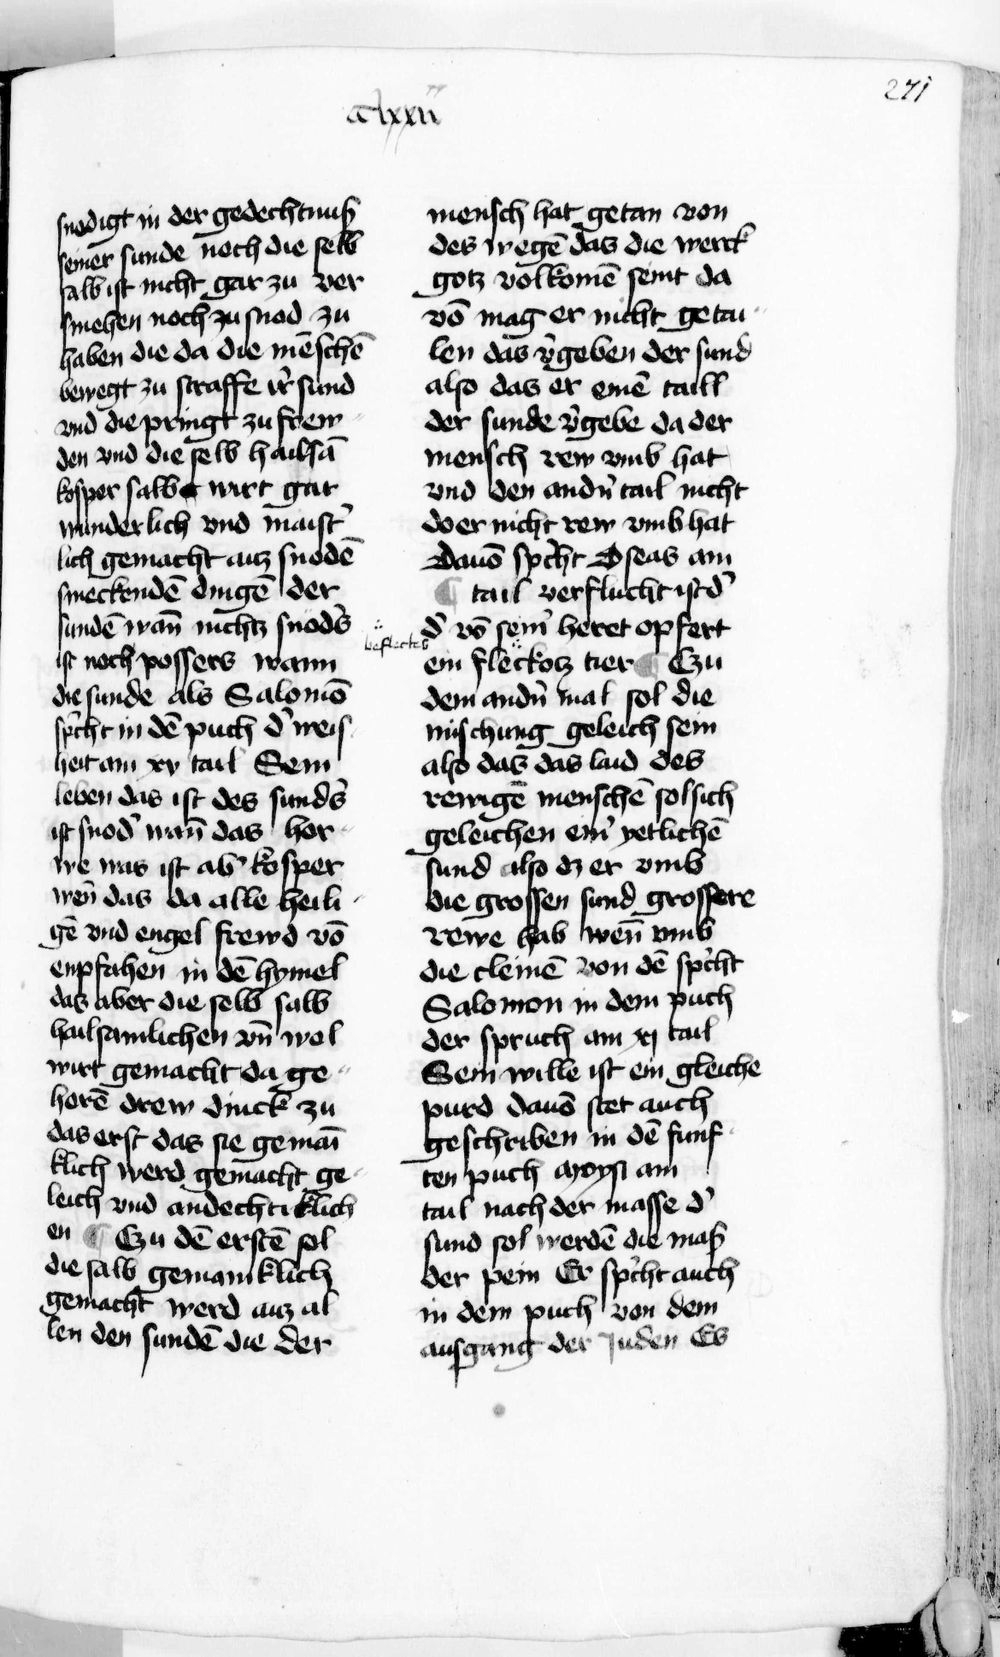 271
clxxii
snodigt in der gedechtnuß
seiner sunde noch die selb
salb ist nicht gar zu ver
smehen noch zu snod zu
haben die da die mēschē
bewegt zu straffe ir̾ sund
vnd die pringt zu frew-
den vnd die selb hailsā
kosper salb wirt gar
wunderlich vnd maist̾
lich gemacht auz snodē
smeckendē dingē der
sundē wañ nichtz snod̾s
ist noch possers wann
die sunde als Salomō
sp̾cht in dē puch d̾ weis-
heit am xv tail Sein
leben das ist des sund̾s
ist snod̾ wañ das hor-
we was ist ab̾ kosper
weñ das da alle heili-
gē vnd engel frewd vō
enpfahen in dē hymel
daz aber die selb salb
hailsamlichen vn̄ wol
wirt gemacht da ge-
horē drew dinck zu
das erst das sie gemai
klich werd gemacht ge-
leich vnd andechtiklich
en ¶ Czu dē erstē sol
die salb gemainklich
gemacht werd auz al
len den sundē die der
mensch hat getan von
des wegē das die werck
gotz volkomē seint da
vō mag er nicht getai-
len das v̾geben der sund
also das er einē taill
der sunde v̾gebe da der
mensch rew vmb hat
vnd den and̾n tail nicht
do er nicht rew vmb hat
Dauō sp̾cht Oseas am
¶ tail verflucht ist d̾
d̾ vō sein̾ heret opfert
beflectes
ein fleckotz tier ¶ Czu
dem and̾n mal sol die
mischung geleich sein
also das das laid des
rewigē menschē sol sich
geleichen ein̾ yetlichē
sund also dz er vmb
die grossen sund grossere
rewe hab weñ vmb
die cleinē von dē sp̾cht
Salomon in dem puch
der spruch am xj tail
Sein wille ist ein gleiche
purd dauō stet auch
geschriben in dē funf-
ten puch Moysi am
tail nach der masse d̾
sund sol werdē die maß
der pein Er sp̾cht auch
in dem puch von dem
ausgang der Juden Es